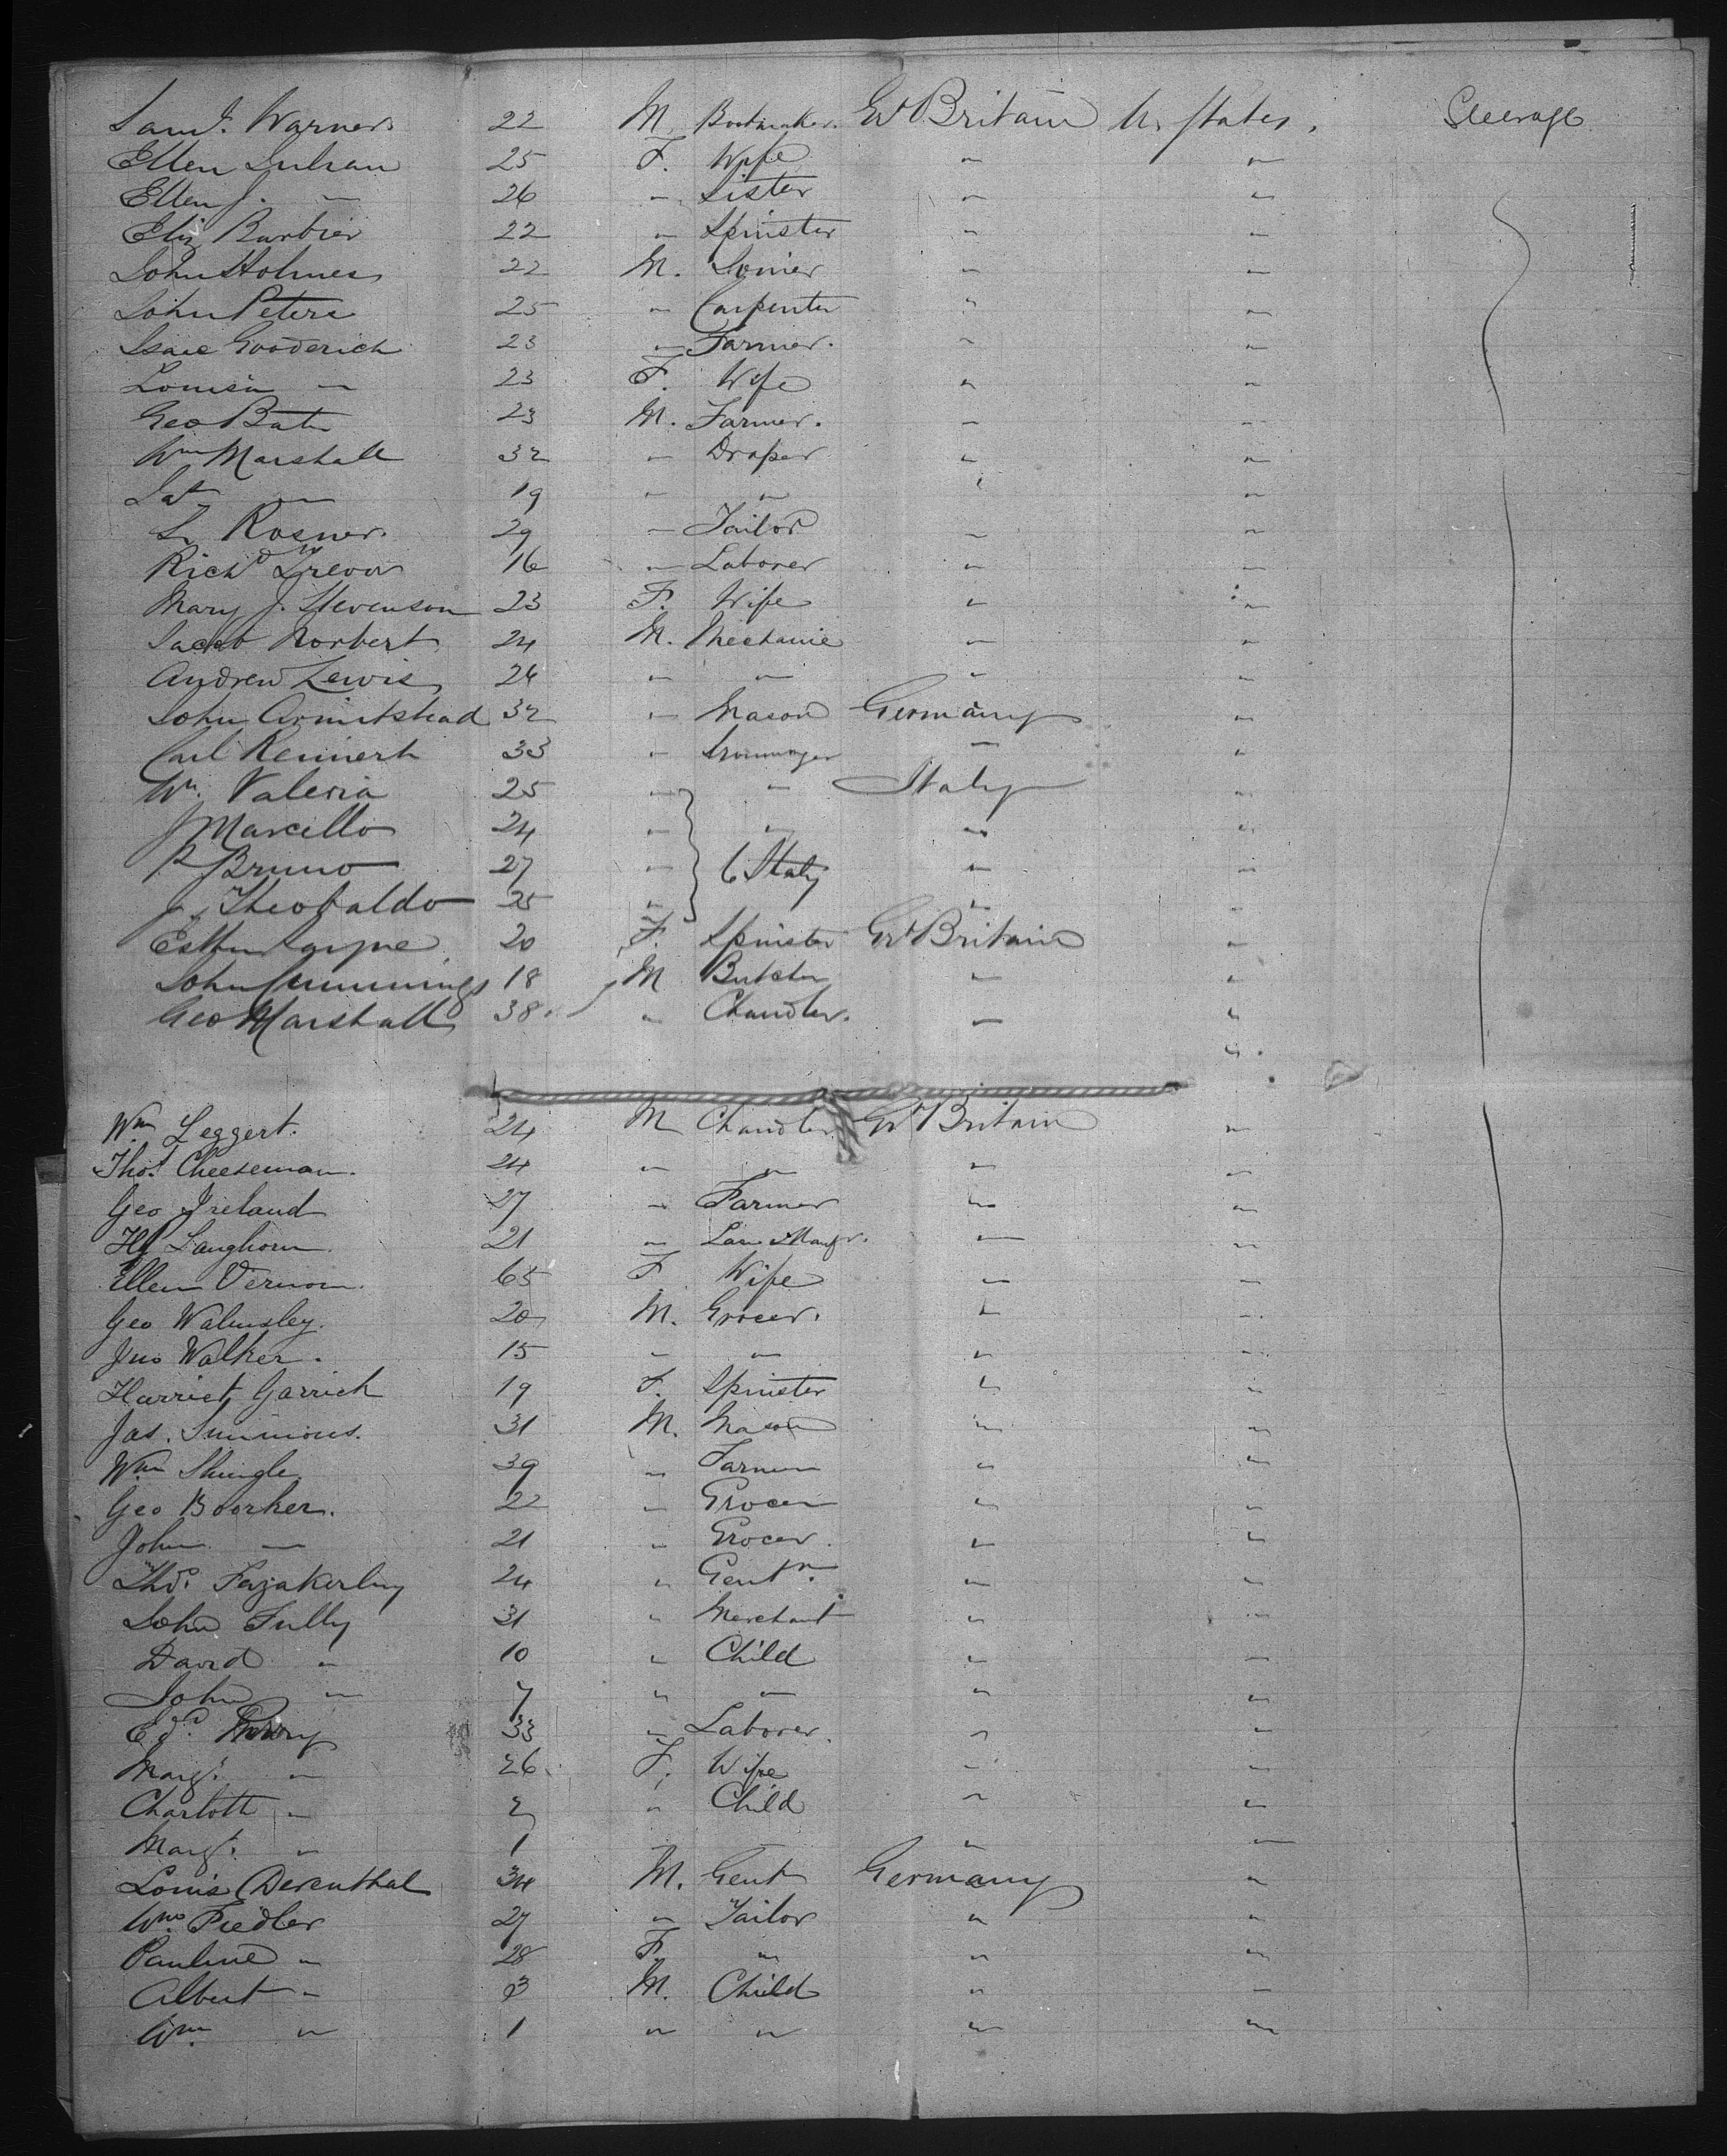 Saml. Warner 22 M. Bootmaker. Gt Britain U. States. Steerage
Ellen Suhran 25 F. Wife " "
Ellen J. " 26 " Sister " "
Eliz Barbier 22 " Spinster " "
John Holmes 22 M. Joiner " "
John Peters 25 " Carpenter " "
Isaac Gooderich 23 " Farmer. " "
Louisa " 23 F. Wife " "
Geo Bate 23 M. Farmer. " "
Wm Marshall 32 " Draper " "
" 19 " " " "
S. Rosner. 29 " Tailor " "
Richd Trevor 16 " Laborer " "
Mary J. Stevenson 23 F. Wife " "
Jacob Norbert 24 M. Mechanic " "
Andrew Lewis 26 " " " "
John Armitstead 32 " Mason Germany "
Carl Reinert 33 " Ironmonger " "
Wm. Valeria 25 " " Italy "
J Marcello 24 " " " "
P Bruno 27 " 6 Italy " "
J. Theobaldo 25 " " "
Esther Payne 20 F. Spinster Gt Britain "
John Cummings 18 M Butcher " "
Geo Marshall 38 " Chandler. " "
" .
Wm Leggert. 24 M Chandler Gt Britain "
Thos. Cheeseman. 24 " " " "
Geo Ireland 27 " Farmer " "
Hy Langhorn. 21 " Manfr. " "
Ellen Vernon. 65 F. Wife " "
Geo Walmsley. 20 M. Grocer. " "
Jno Walker. 15 " " " "
Harriet Garrick 19 F. Spinster " "
Jas. Simmons. 31 M. Mason " "
Wm Shingle. 39 " Farmer " "
Geo Boorker. 22 " Grocer " "
John " 21 " Grocer. " "
Thos. Fazakerley 24 " Gentn. " "
John Tully 31 " Merchant " "
David " 10 " Child " "
John " 7 " " " "
Ed. 33 " Laborer. " "
Margt. " 26 F. Wife " "
Charlotte " 2 " Child " "
Margt. " 1 " " " "
Louis Derenthal 34 M. Gent Germany "
Wm. Fiedler 27 " Tailor " "
Pauline " 28 F. " " "
Albert " 3 M. Child " "
Wm. " 1 " " " "